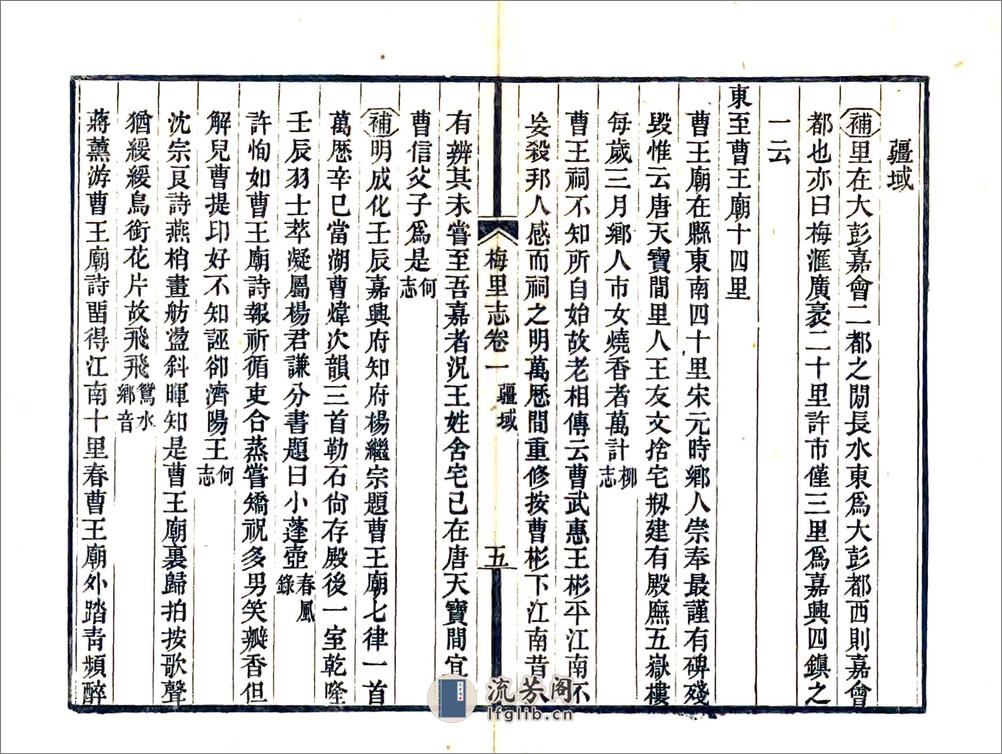 疆域
補里在大彭嘉會二都之閒長水東爲大彭都西則嘉會
都也亦曰梅滙廣袤二十里許市僅三里爲嘉興四鎮之
一云
東至曹王廟十四里
曹王廟在縣東南四十里宋元時鄉人崇奉最謹有碑殘
毀惟云唐天寶間里人王友文捨宅剏建有殿廡五嶽樓
每歲三月鄉人市女燒香者萬計柳志
曹王祠不知所自始故老相傳云曹武惠王彬平江南不
妄殺邦人感而祠之明萬厯間重修按曹彬下江南昔
梅里志卷一 疆域 五
有辨其未嘗至吾嘉者況王姓舍宅已在唐天寶間宜
曹信父子爲是何志
補明成化壬辰嘉興府知府楊繼宗題曹王廟七律一首
萬厯辛巳當湖曹煒次韻三首勒石尙存殿後一室乾隆
壬辰羽士萃凝屬楊君謙分書題曰小蓬壺春風錄
許恂如曹王廟詩報祈循吏合蒸嘗矯祝多男笑瓣香但
解兒曹提印好不知誣卻濟陽王何志
沈宗良詩燕梢畫舫盪斜暉知是曹王廟裏歸拍按歌聲
猶緩緩鳥銜花片故飛飛鴛水鄉音
蔣薰游曹王廟詩畱得江南十里春曹王廟外踏靑頻醉
流芳阁
lfglib.cn